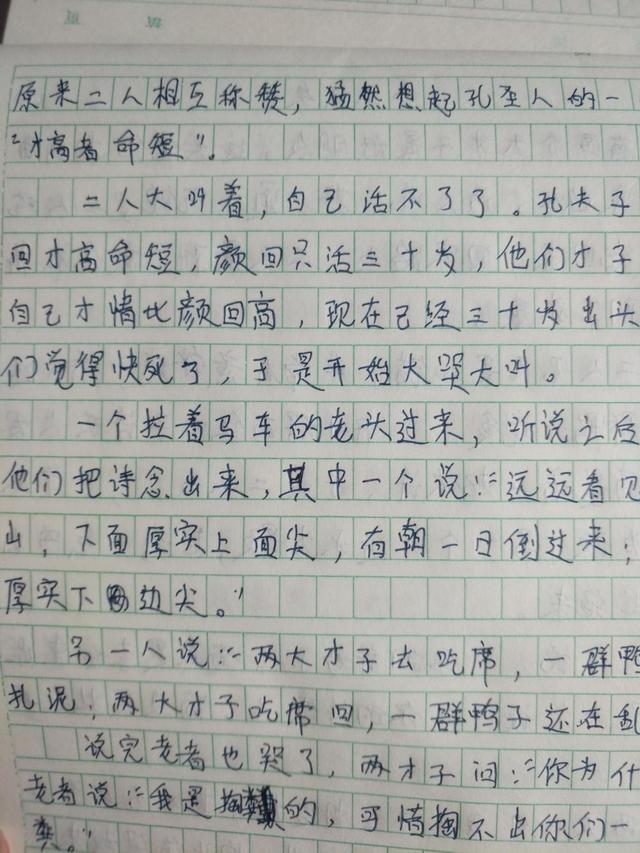 原来二人相互称赞,猛然想起孔圣人的一
"才高者命短"。
二人大叫着,自己活不了了。孔夫子
回才高命短,颜回只活三十岁,他们才子
自己才情比颜回高,现在已经三十岁出头
们觉得快死了,于是开始大哭大叫。
一个拉着马车的老头过来,听说之后
他们把诗念出来,其中一个说:"远远看见
山,下面厚实上面尖,有朝一日倒过来;
厚实下边尖。"
另一人说:"两大才子去吃席,一群鸭
扎泥;两大才子吃席回,一群鸭子还在乱
说完老者也哭了,两才子问:"你为什
老者说:"我是掏粪的,可惜掏不出你们一
粪。"